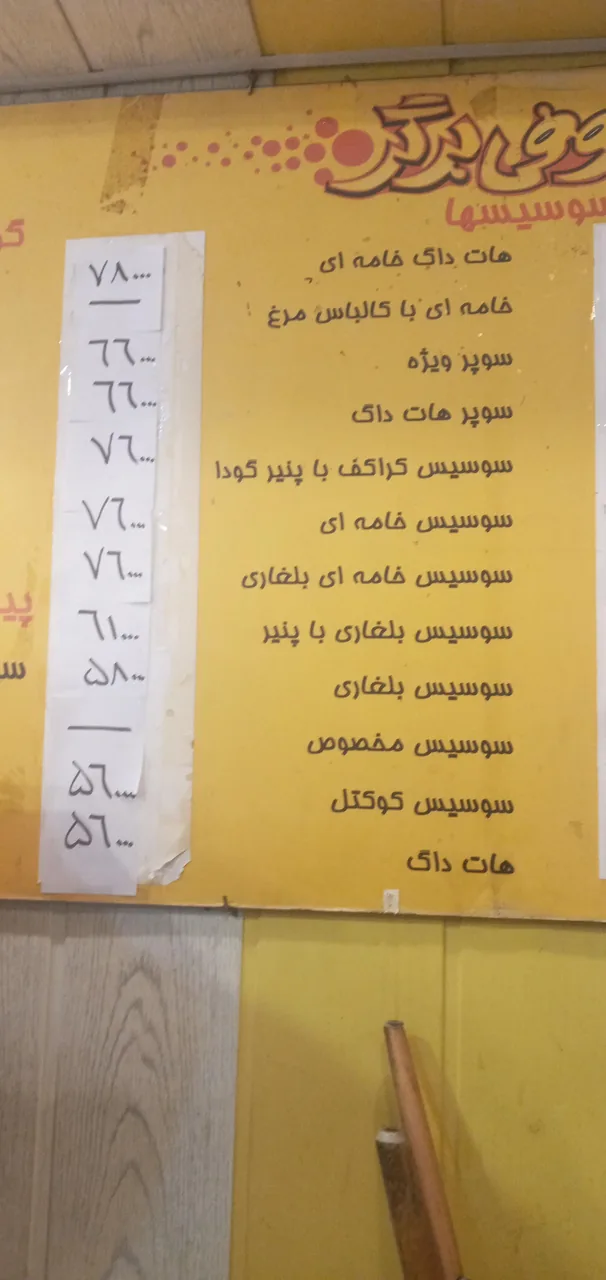 برگر
سوسیسها
هات داگ خامه ای ۷۸۰۰۰
خامه ای با کالباس مرغ —
سوپر ویژه ۶۶۰۰۰
سوپر هات داگ ۶۶۰۰۰
سوسیس کراکف با پنیر گودا ۷۶۰۰۰
سوسیس خامه ای ۷۶۰۰۰
سوسیس خامه ای بلغاری ۷۶۰۰۰
سوسیس بلغاری با پنیر ۶۱۰۰۰
سوسیس بلغاری ۵۸۰۰۰
سوسیس مخصوص —
سوسیس کوکتل ۵۶۰۰۰
هات داگ ۵۶۰۰۰